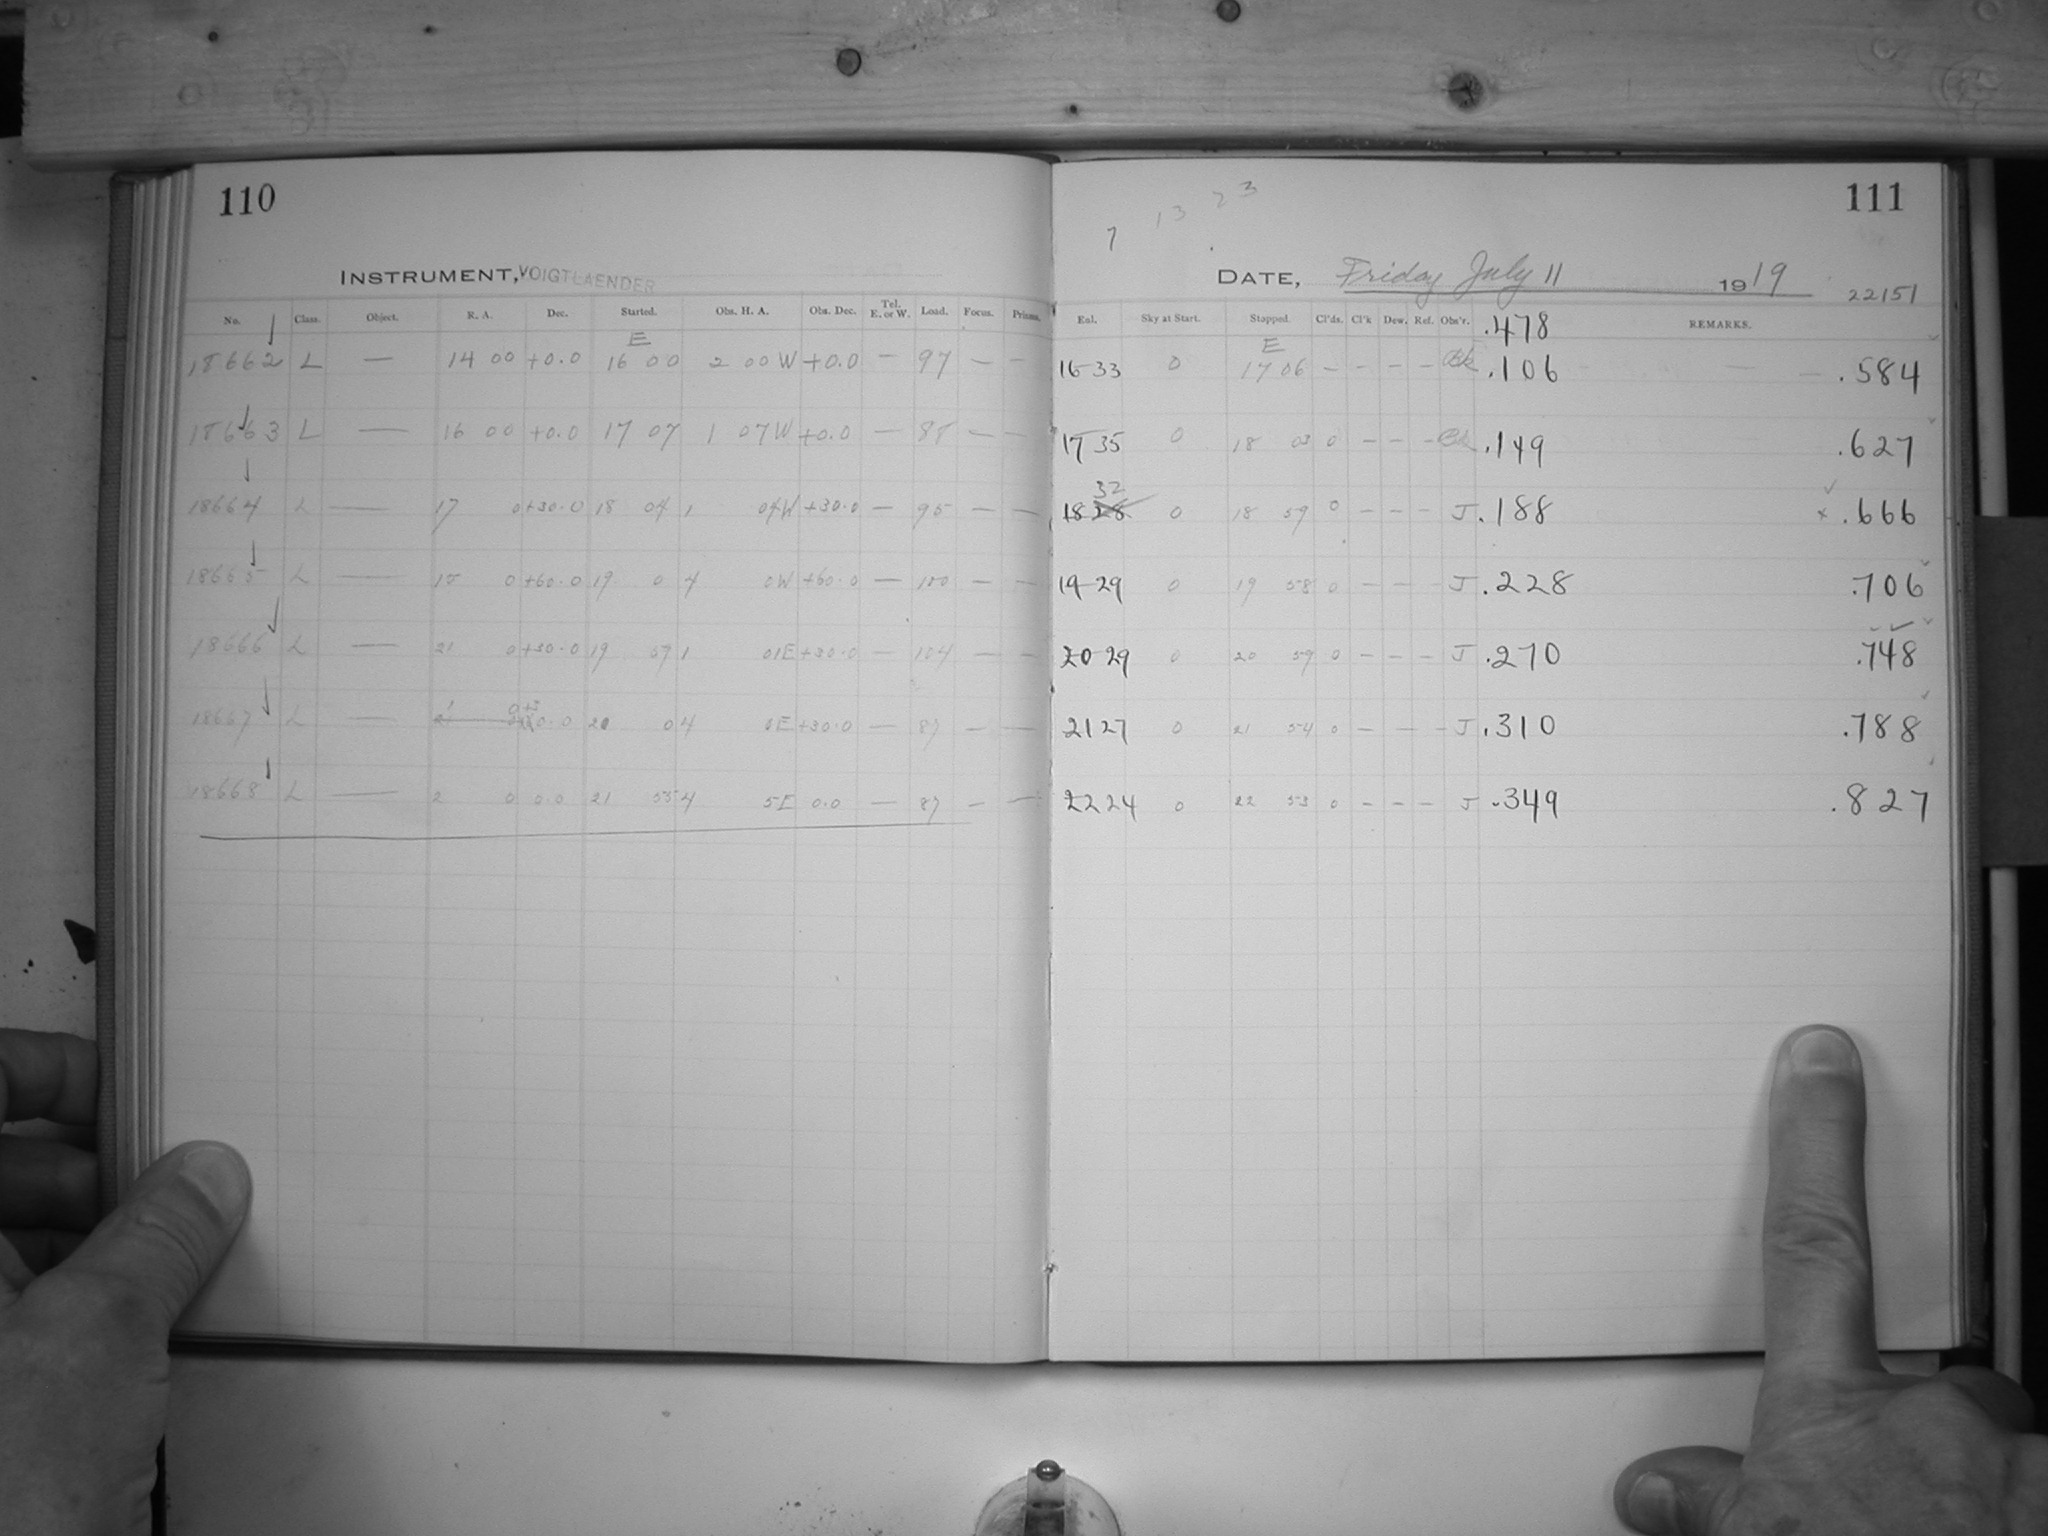 110
INSTRUMENT, VOIGTLAENDER
No. Class. Object. R. A. Dec. Started. Obs. H. A. Obs. Dec. Tel. E. or W. Load. Focus. Prisms.
E
18662 L — 14 00 +0.0 16 00 2 00 W +0.0 — 97 — —
18663 L — 16 00 +0.0 17 07 1 07 W +0.0 — 88 — —
18664 L — 17 0 +30.0 18 04 1 04W +30.0 — 95 — —
18665 L — 15 0 +60.0 19 0 4 0W +60.0 — 100 — —
18666 L — 21 0 +30.0 19 59 1 01E +30.0 — 104 — —
18667 L — 20 0 4 0E +30.0 — 87 — —
18668 L — 2 0 0.0 21 55 4 5E 0.0 — 87 — —
7 13 23
111
DATE, Friday July 11 1919
22151
Enl. Sky at Start. Stopped. Cl'ds. Cl'k Dew. Ref. Obs'r. .478 REMARKS.
E
16 33 0 17 06 — — — — Bk .106 .584
17 35 0 18 03 0 — — — Bk .149 .627
32
18 28 0 18 59 0 — — — J .188 x .666
19 29 0 19 58 0 — — — J .228 .706
20 29 0 20 59 0 — — — J .270 .748
21 27 0 21 54 0 — — — J .310 .788
22 24 0 22 53 0 — — — J .349 .827